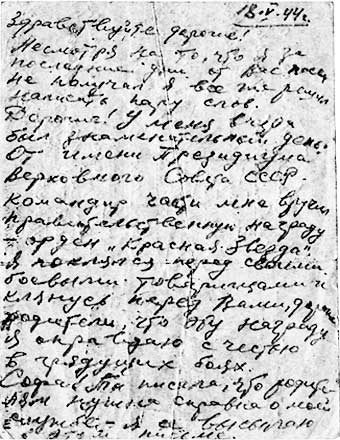 18.V.44г.
Здравствуйте дорогие!
Несмотря на то, что я за
последние дни от Вас писем
не получал я все же решил
написать пару слов.
Дорогие! У меня вчера
был знаменательный день.
От имени Президиума
Верховного Совета СССР.
командир части мне вручил
правительственную награду
– орден "Красная Звезда"
Я поклялся перед своими
боевыми товарищами и
клянусь перед Вами, дорогие
родители, что эту награду
я оправдаю с честью
в грядущих боях.
Софа писала, что родите
лям нужна справка о моей
службе – я высылаю
в этом письме